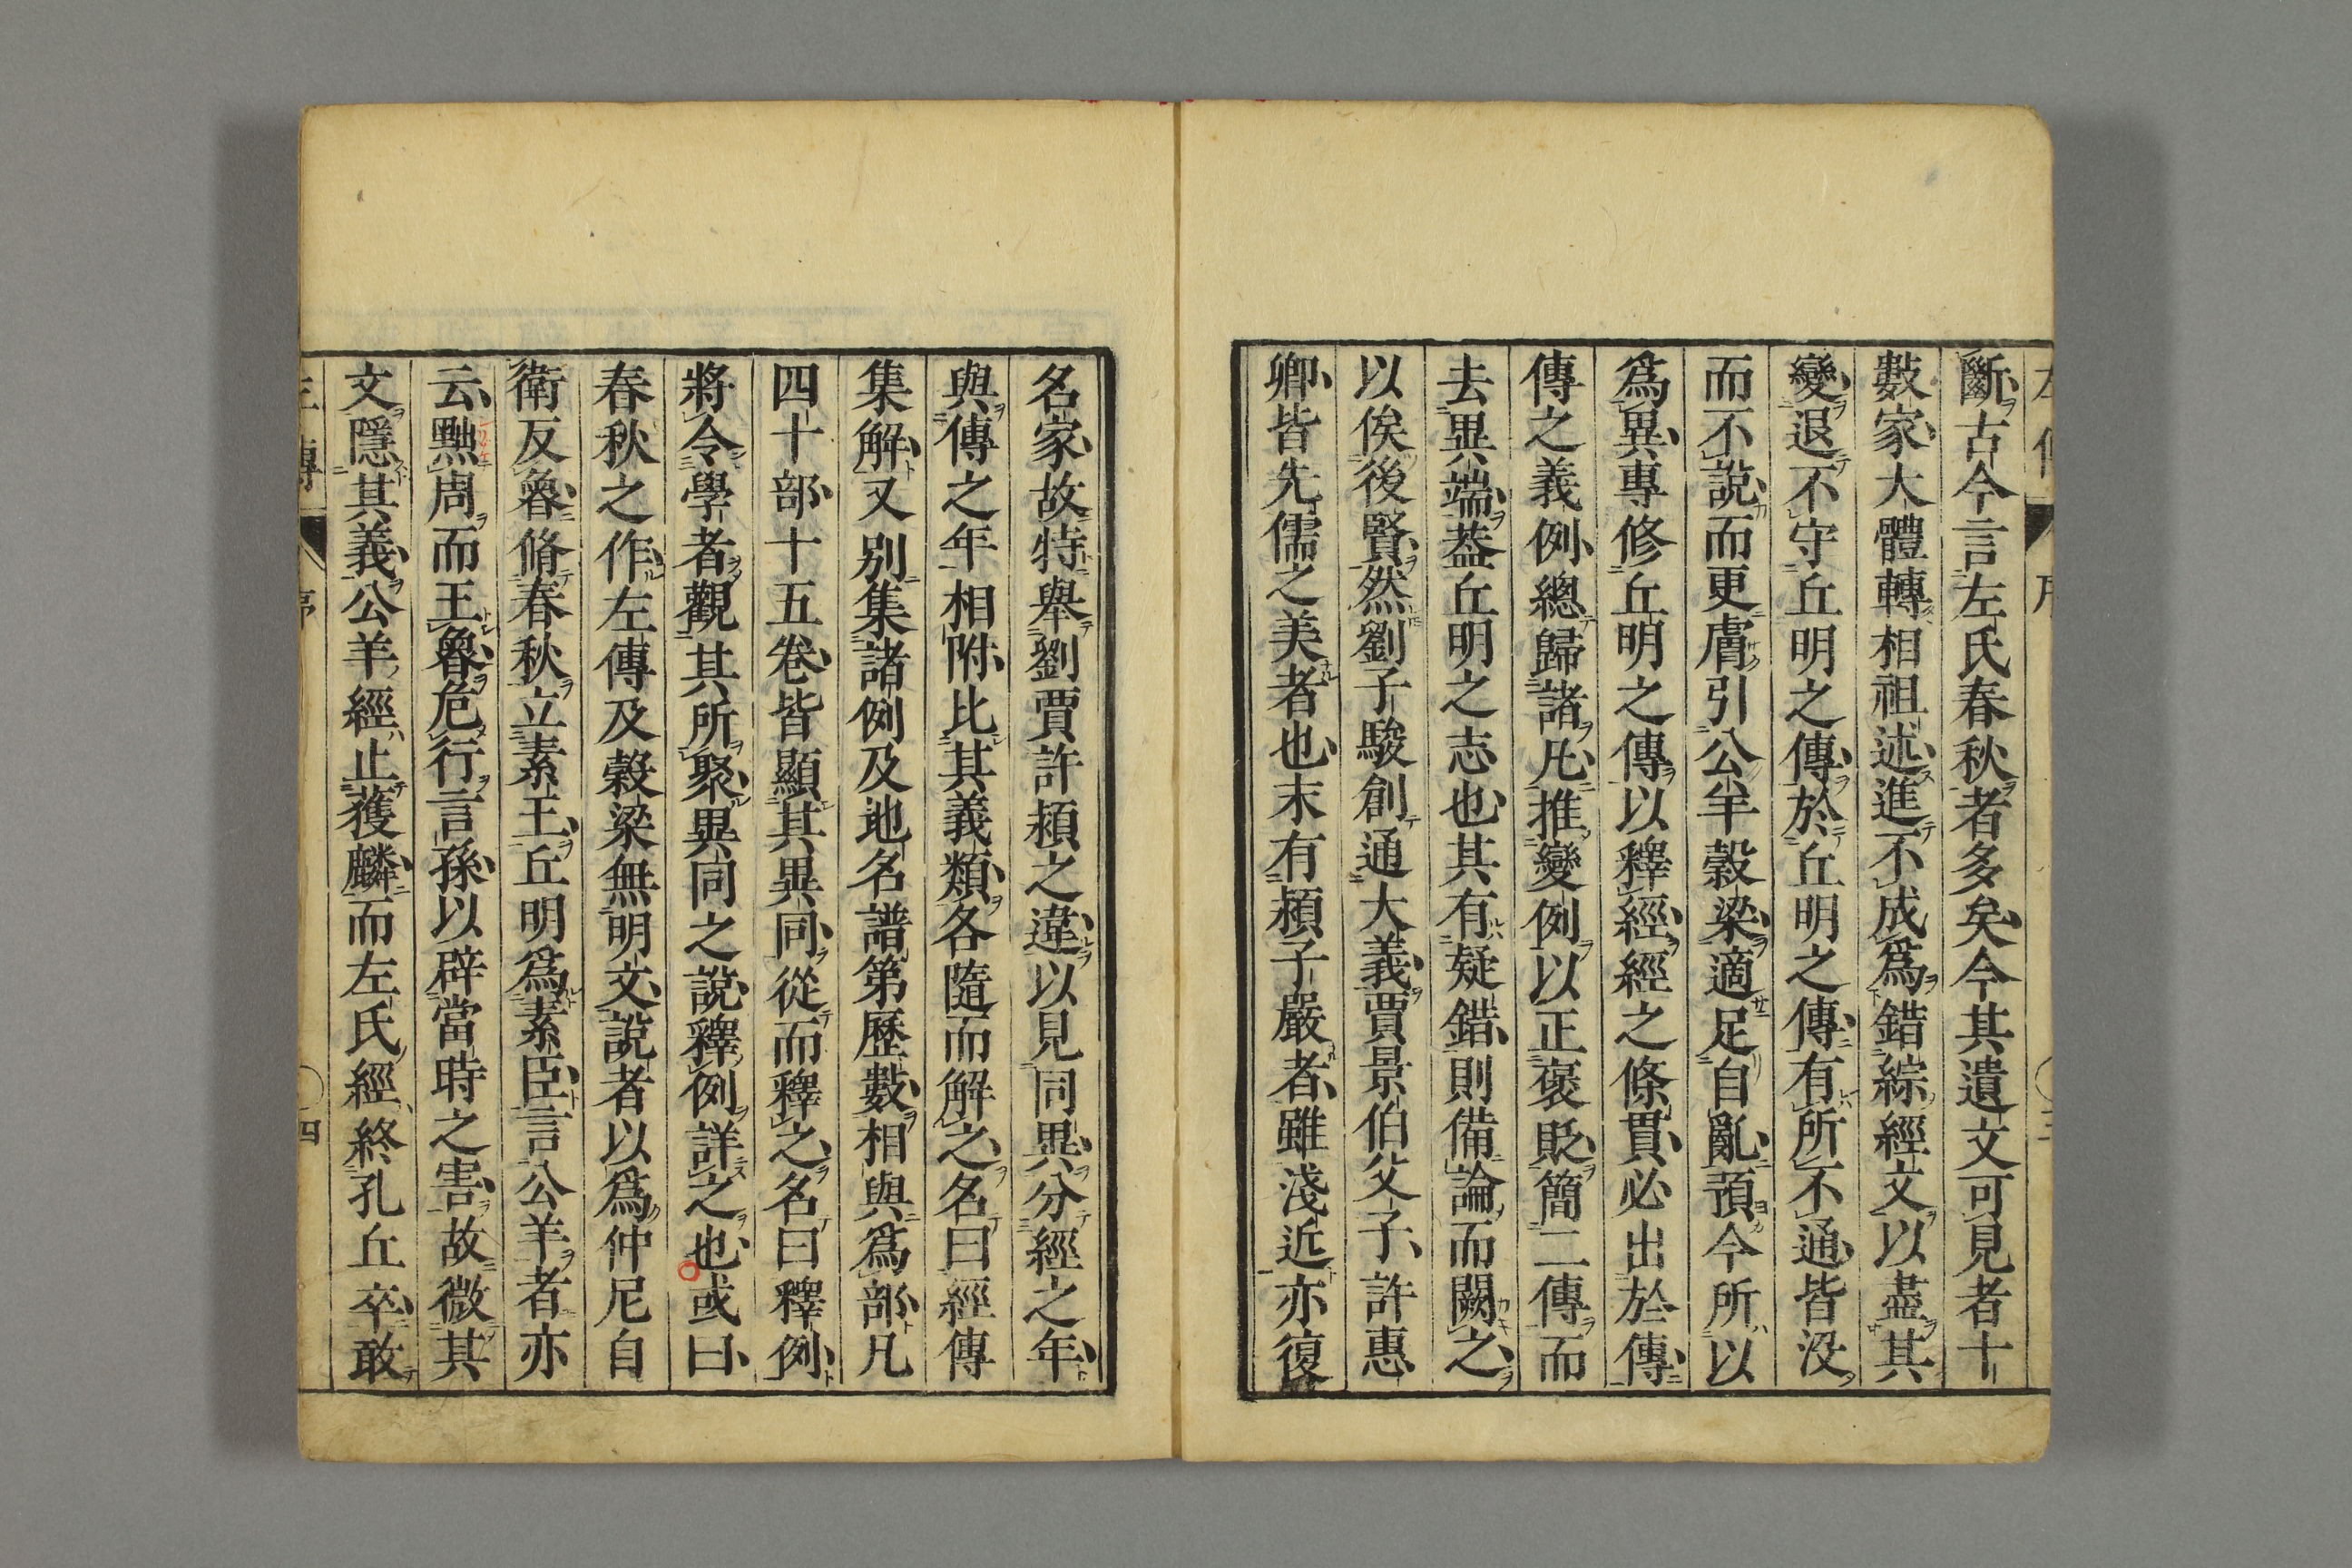 斷古今言左氏春秋者多矣今其遺文可見者十
數家大體轉相祖述進不成爲錯綜經文以盡其
變退不守丘明之傳於丘明之傳有所不通皆没
而不說而更膚引公羊穀梁適足自亂預今所以
爲異專修丘明之傳以釋經經之條貫必出於傳
傳之義例總歸諸凡推變例以正褒貶簡二傳而
去異端蓋丘明之志也其有疑錯則備論而闕之
以俟後賢然劉子駿創通大義賈景伯父子許惠
卿皆先儒之美者也末有潁子嚴者雖淺近亦復
名家故特舉劉賈許潁之違以見同異分經之年
與傳之年相附比其義類各隨而解之名曰經傳
集解又別集諸例及地名譜第歷數相與爲部凡
四十部十五卷皆顯其異同從而釋之名曰釋例
將令學者觀其所聚異同之說釋例詳之也或曰
春秋之作左傳及穀梁無明文說者以爲仲尼自
衛反魯脩春秋立素王丘明爲素臣言公羊者亦
云黜周而王魯危行言孫以辟當時之害故微其
文隱其義公羊經止獲麟而左氏經終孔丘卒敢